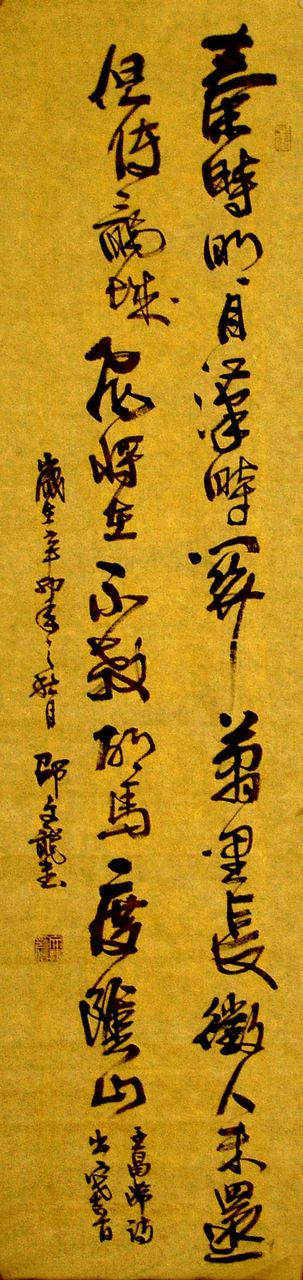 秦時明月漢時關萬里長徵人未還
但使龍城飛將在不教胡馬度陰山
王昌齡詩
出塞一首
歲在辛卯年之秋月 邵文龍書